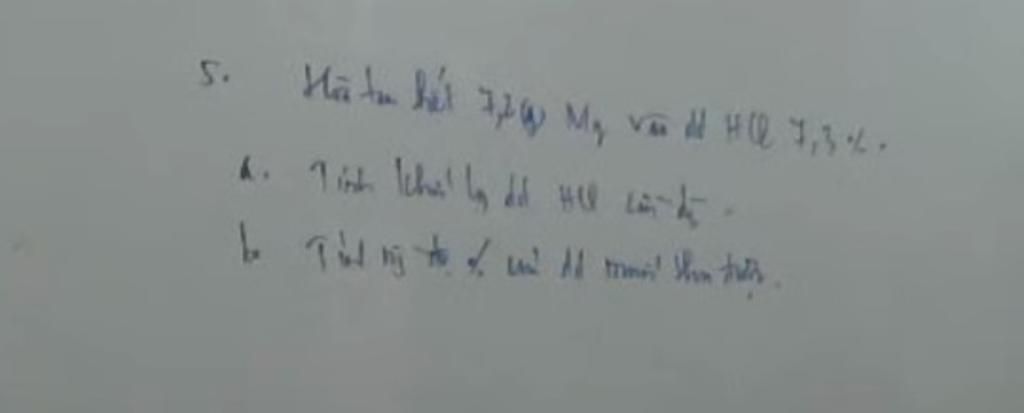 5. Hòa tan hết 7,2(g) Mg vào dd HCl 7,3%.
a. Tính khối lg dd HCl cần dg.
b Tính ng độ % của dd muối thu được.